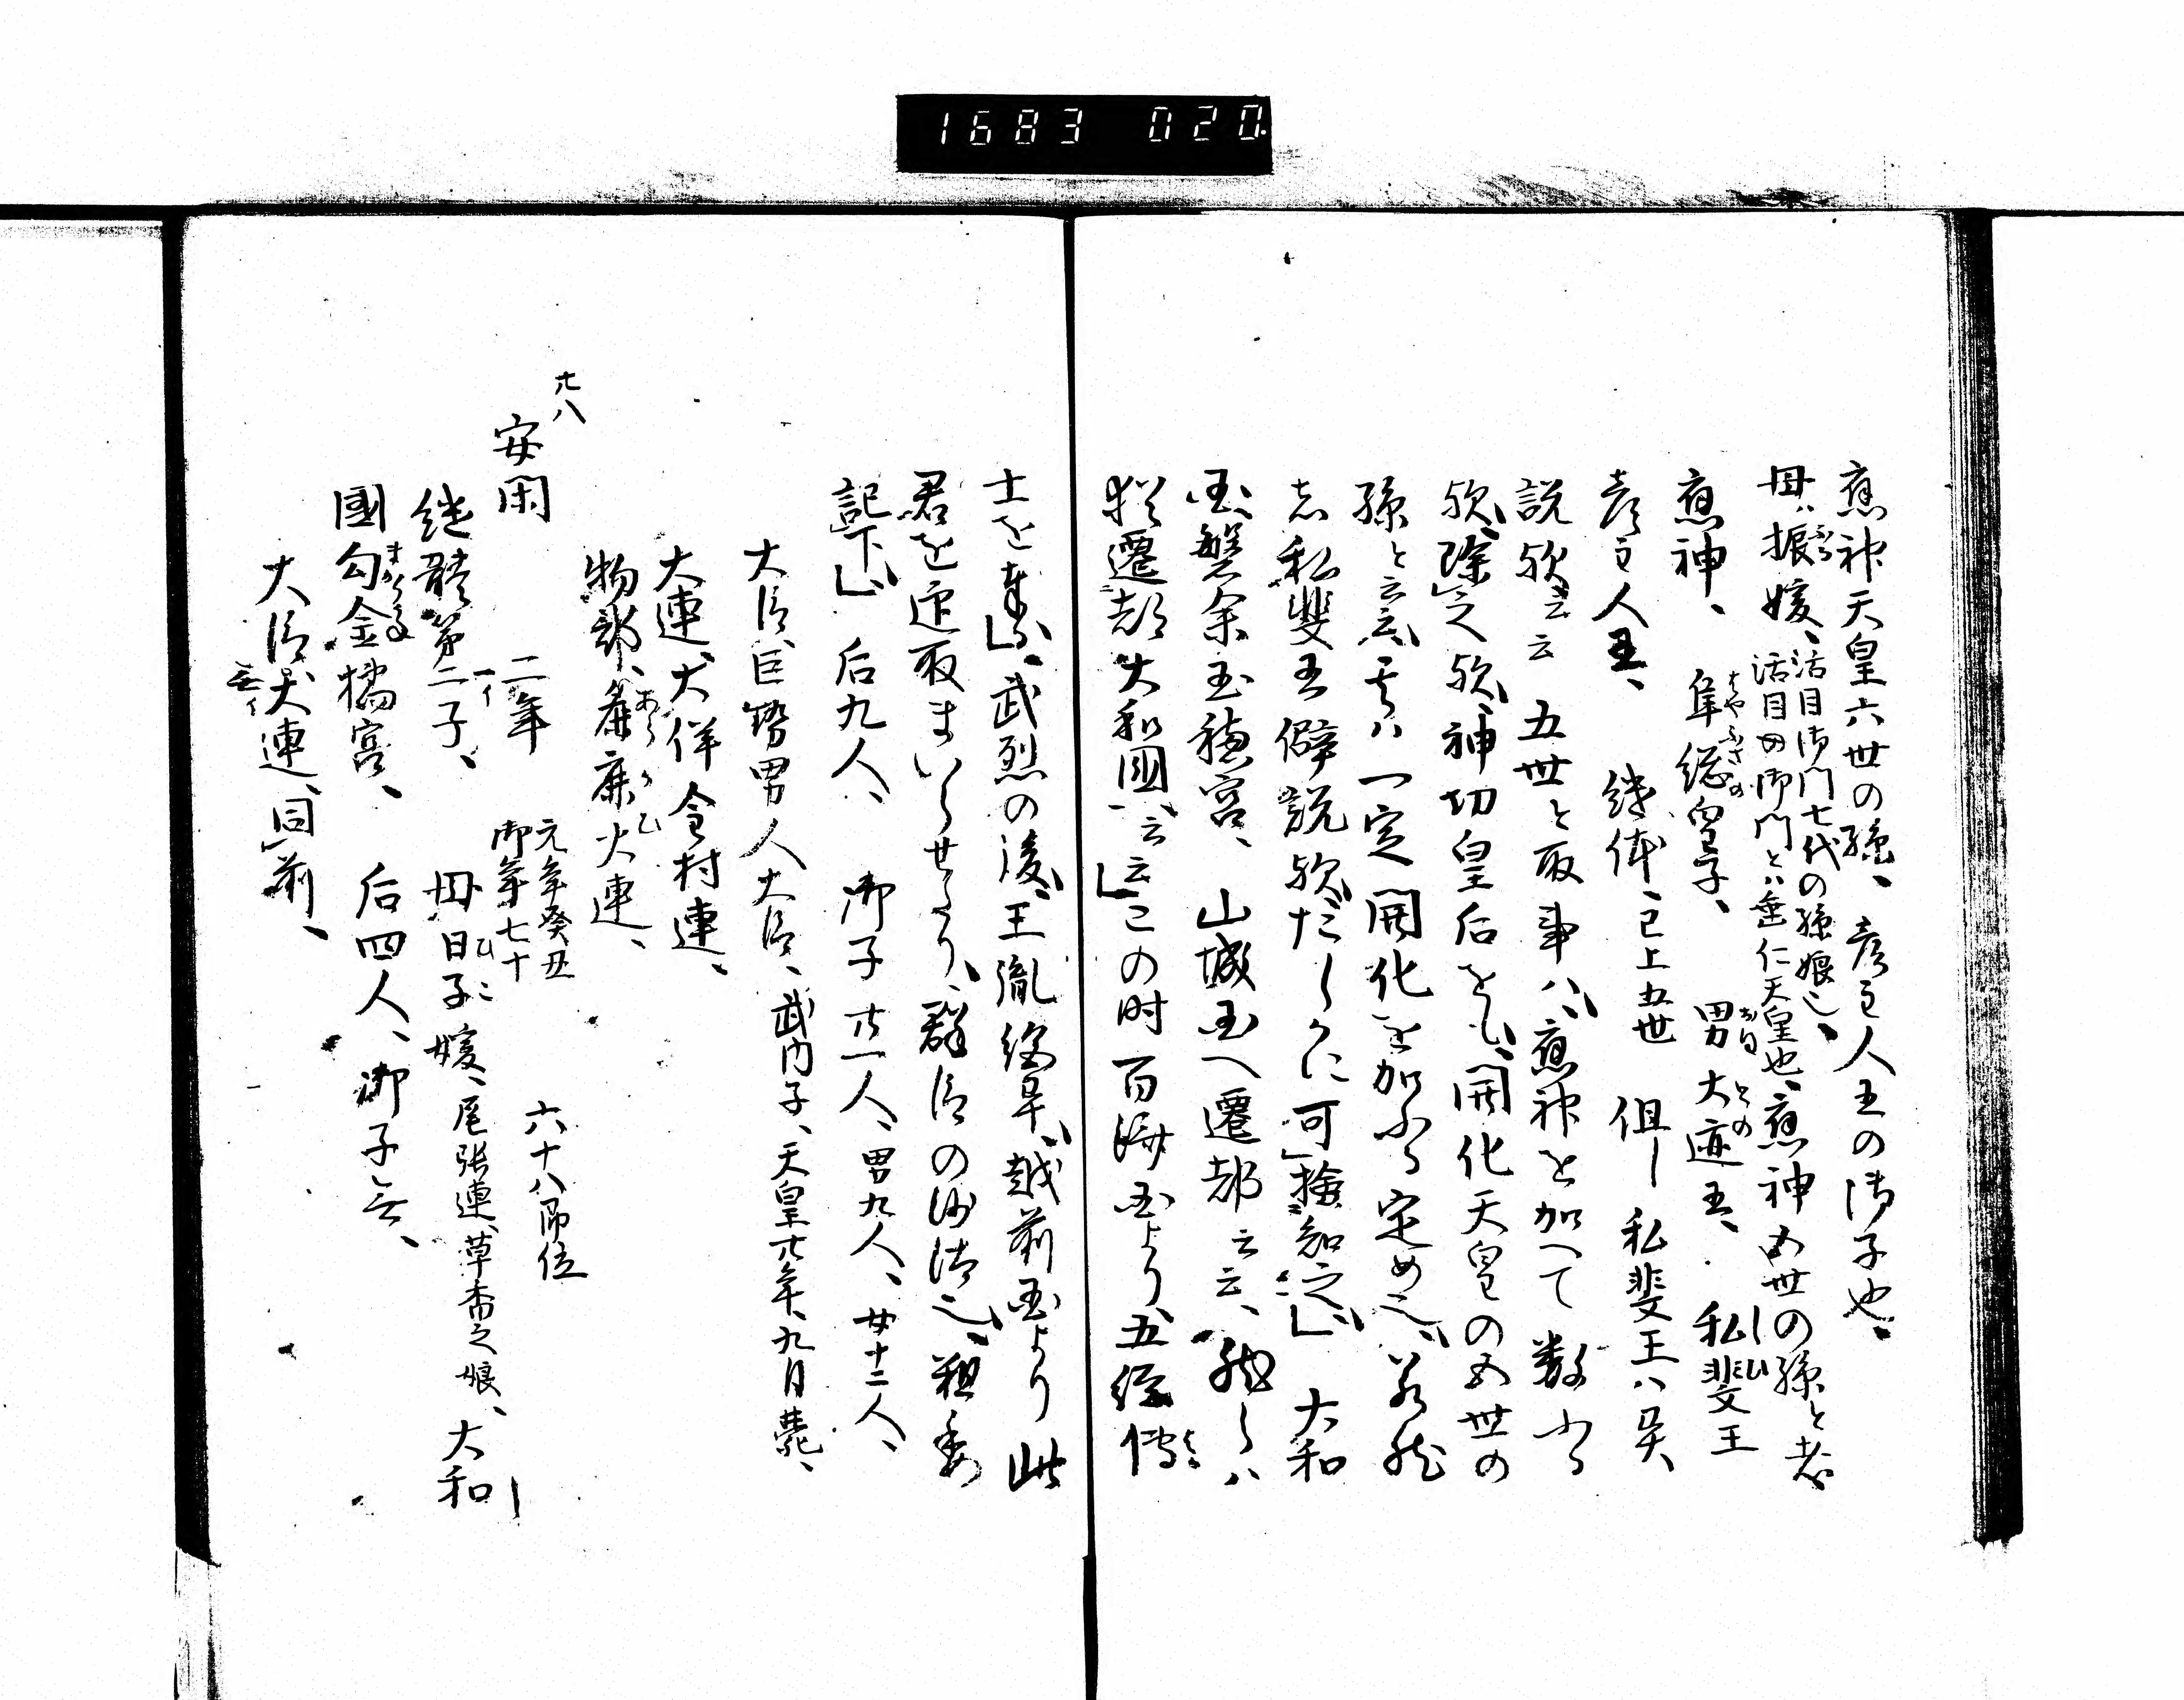 1683 020.
應神天皇六世の孫、彦主人王の御子也、
母ハ振媛、活目御門七代の孫娘也、
活目の御門とハ垂仁天皇也、應神五世の孫と者
應神、 隼総皇子、 男大迹王、 私斐王
はやふさの
彦主人王、 継体、已上五世 但 私斐王ハ
説欤云云 五世と取事ハ、應神を加へて数ふる
欤、除之欤、神功皇后をも、開化天皇の五世の
孫と云云、其ハ一定開化を加ふる定め也、若然
者私斐王僻説欤、たしかに可撿知之、 大和
国磐余玉穂宮、 山城国へ遷都云云、 然しハ
猶遷都大和國、云云 この时百済国より五経博
士を奉、武烈の後、王胤絶畢、越前国より此
君を迎取まいらせたり、群臣の沙汰也、粗委
記下、 后九人、 御子廿一人、男九人、女十二人、
大臣巨勢男人大臣、武内子、天皇廿年、九月薨、
大連、大伴金村連、
物部、麁鹿火連、
あらかひ
廿八
安閑 二年 元年癸丑
御年七十 六十八即位
継體第二子、 母、日子媛、尾張連、草香之娘、 大和
一イ
國勾金橘宮、 后四人、御子无、
まかりかね
大臣、大連、同前、
无イ